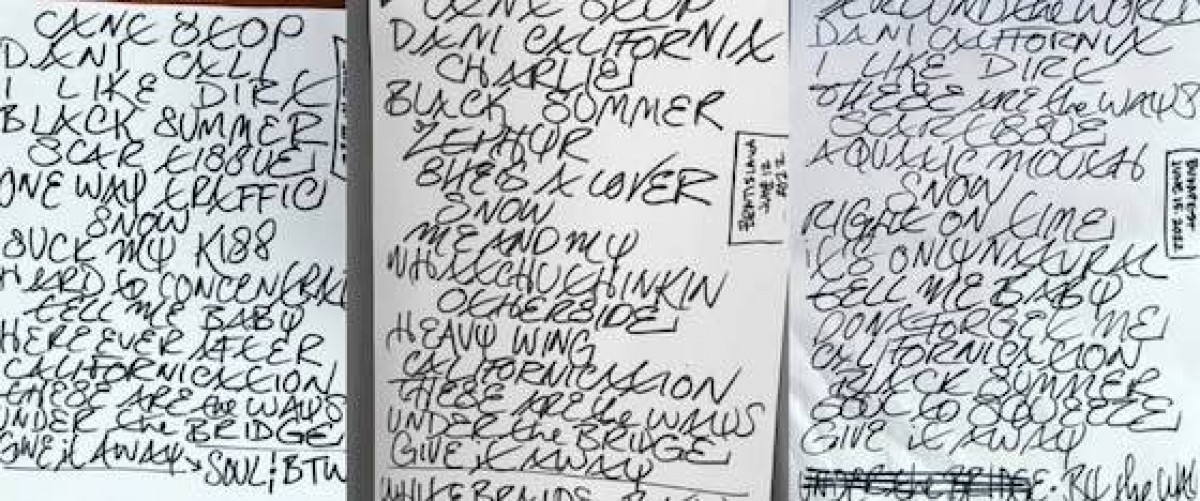 CANT STOP
DANI CALI
I LIKE DIRT
BLACK SUMMER
SCAR TISSUE
ONE WAY TRAFFIC
SNOW
SUCK MY KISS
HARD to CONCENTRA
TELL ME BABY
HERE EVER AFTER
CALIFORNICATION
THESE ARE the WAYS
UNDER the BRIDGE
GIVE it AWAY → SOUL; BTW
CANT STOP
DANI CALIFORNIA
CHARLIE
BLACK SUMMER
ZEPHYR
SHES A LOVER
SNOW
ME AND MY
WHATCHUTHINKIN
OTHERSIDE
HEAVY WING
CALIFORNICATION
THESE ARE the WAYS
UNDER the BRIDGE
GIVE it AWAY
WHITE BRAIDS
JUNE 12
2022
AROUND the WORLD
DANI CALIFORNIA
I LIKE DIRT
THESE ARE the WAYS
SCAR TISSUE
AQUATIC MOUTH
SNOW
RIGHT ON TIME
ITS ONLY NATURAL
TELL ME BABY
DONT FORGET ME
CALIFORNICATION
BLACK SUMMER
SOUL TO SQUEEZE
GIVE it AWAY
UNDER the BRIDGE · BY the WAY
JUNE 15 2022